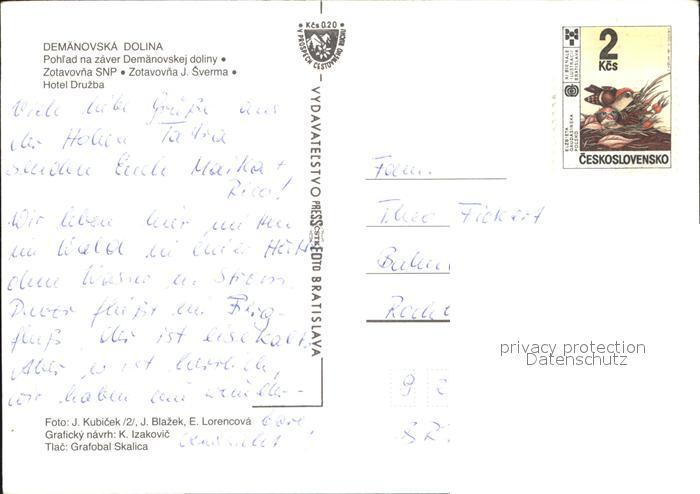 DEMÄNOVSKÁ DOLINA
Pohľad na záver Demänovskej doliny •
Zotavovňa SNP • Zotavovňa J. Šverma •
Hotel Družba
Viele liebe Grüße aus
der Hohen Tatra
senden Euch Maika +
Rico!
Wir leben hier mitten
im Wald in einer Hütte
ohne Wasser u. Strom.
Davor fließt ein Berg-
fluß, der ist eisekalt.
Aber es ist herrlich,
wir haben eine wunder-
bare
Aussicht!
Foto: J. Kubíček /2/, J. Blažek, E. Lorencová
Grafický návrh: K. Izakovič
Tlač: Grafobal Skalica
Kčs 0.20
V PROSPECH CESTOVNÉHO RUCHU
VYDAVATEĽSTVO PRESSFOTO BRATISLAVA
ČSTK
Fam.
Theo Fickert
XI BIENALE
ILUSTRÁCIÍ
BRATISLAVA
ELŻBIETA
GAUDASIŃSKA
POĽSKO
2
Kčs
ČESKOSLOVENSKO
privacy protection
Datenschutz
9 2